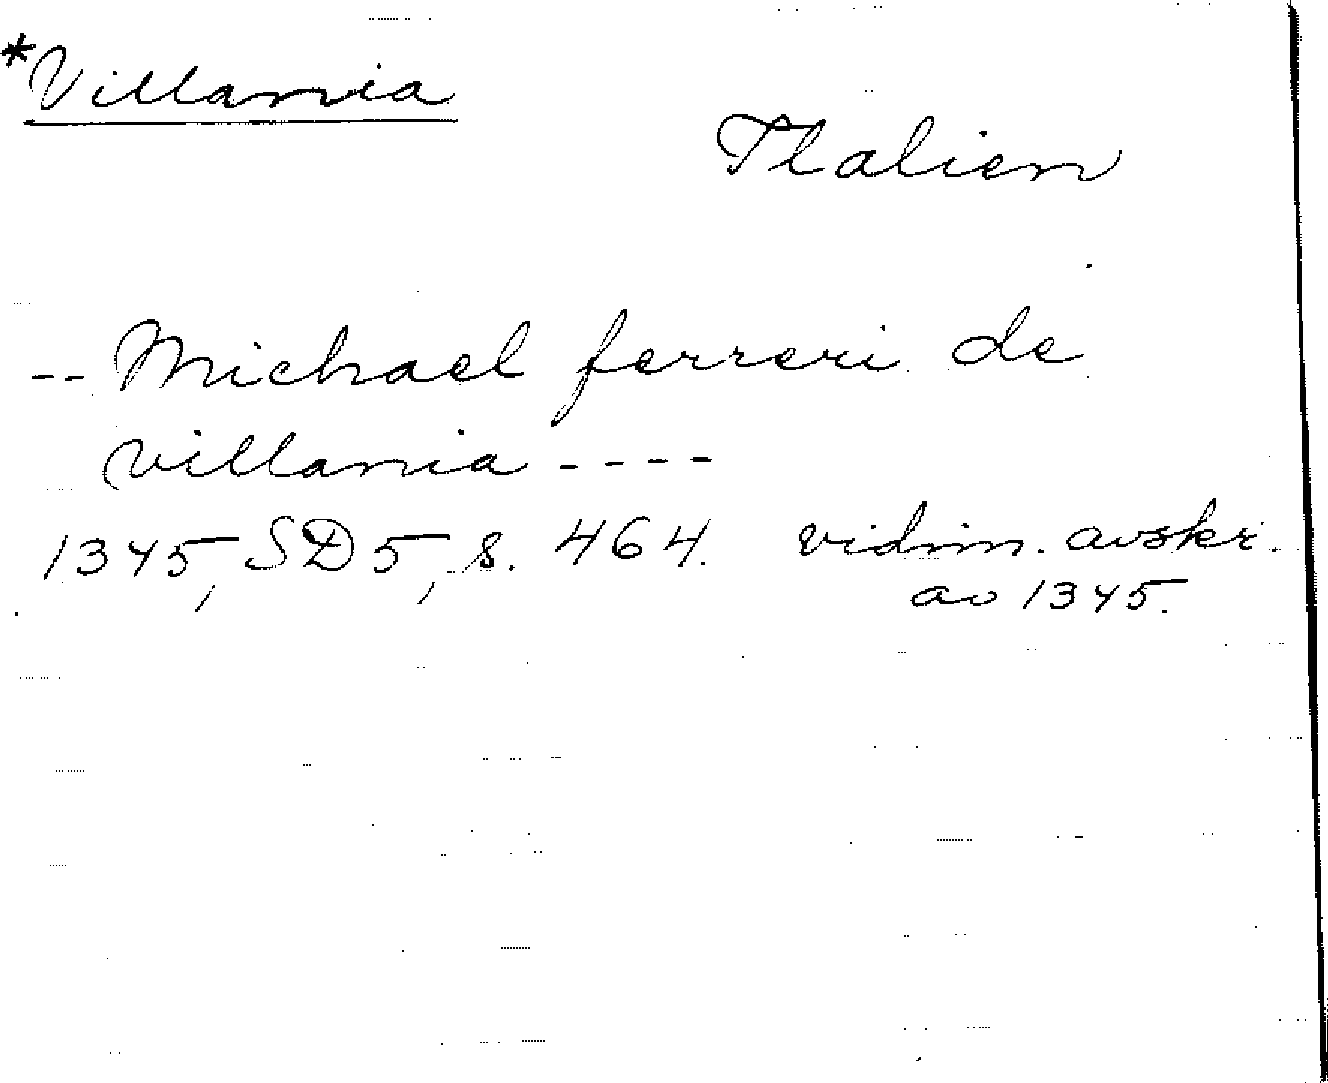 *Villania
Italien
-- Michael ferreri de
villania ----
1345, SD 5, s. 464. vidim. avskr.
av 1345.